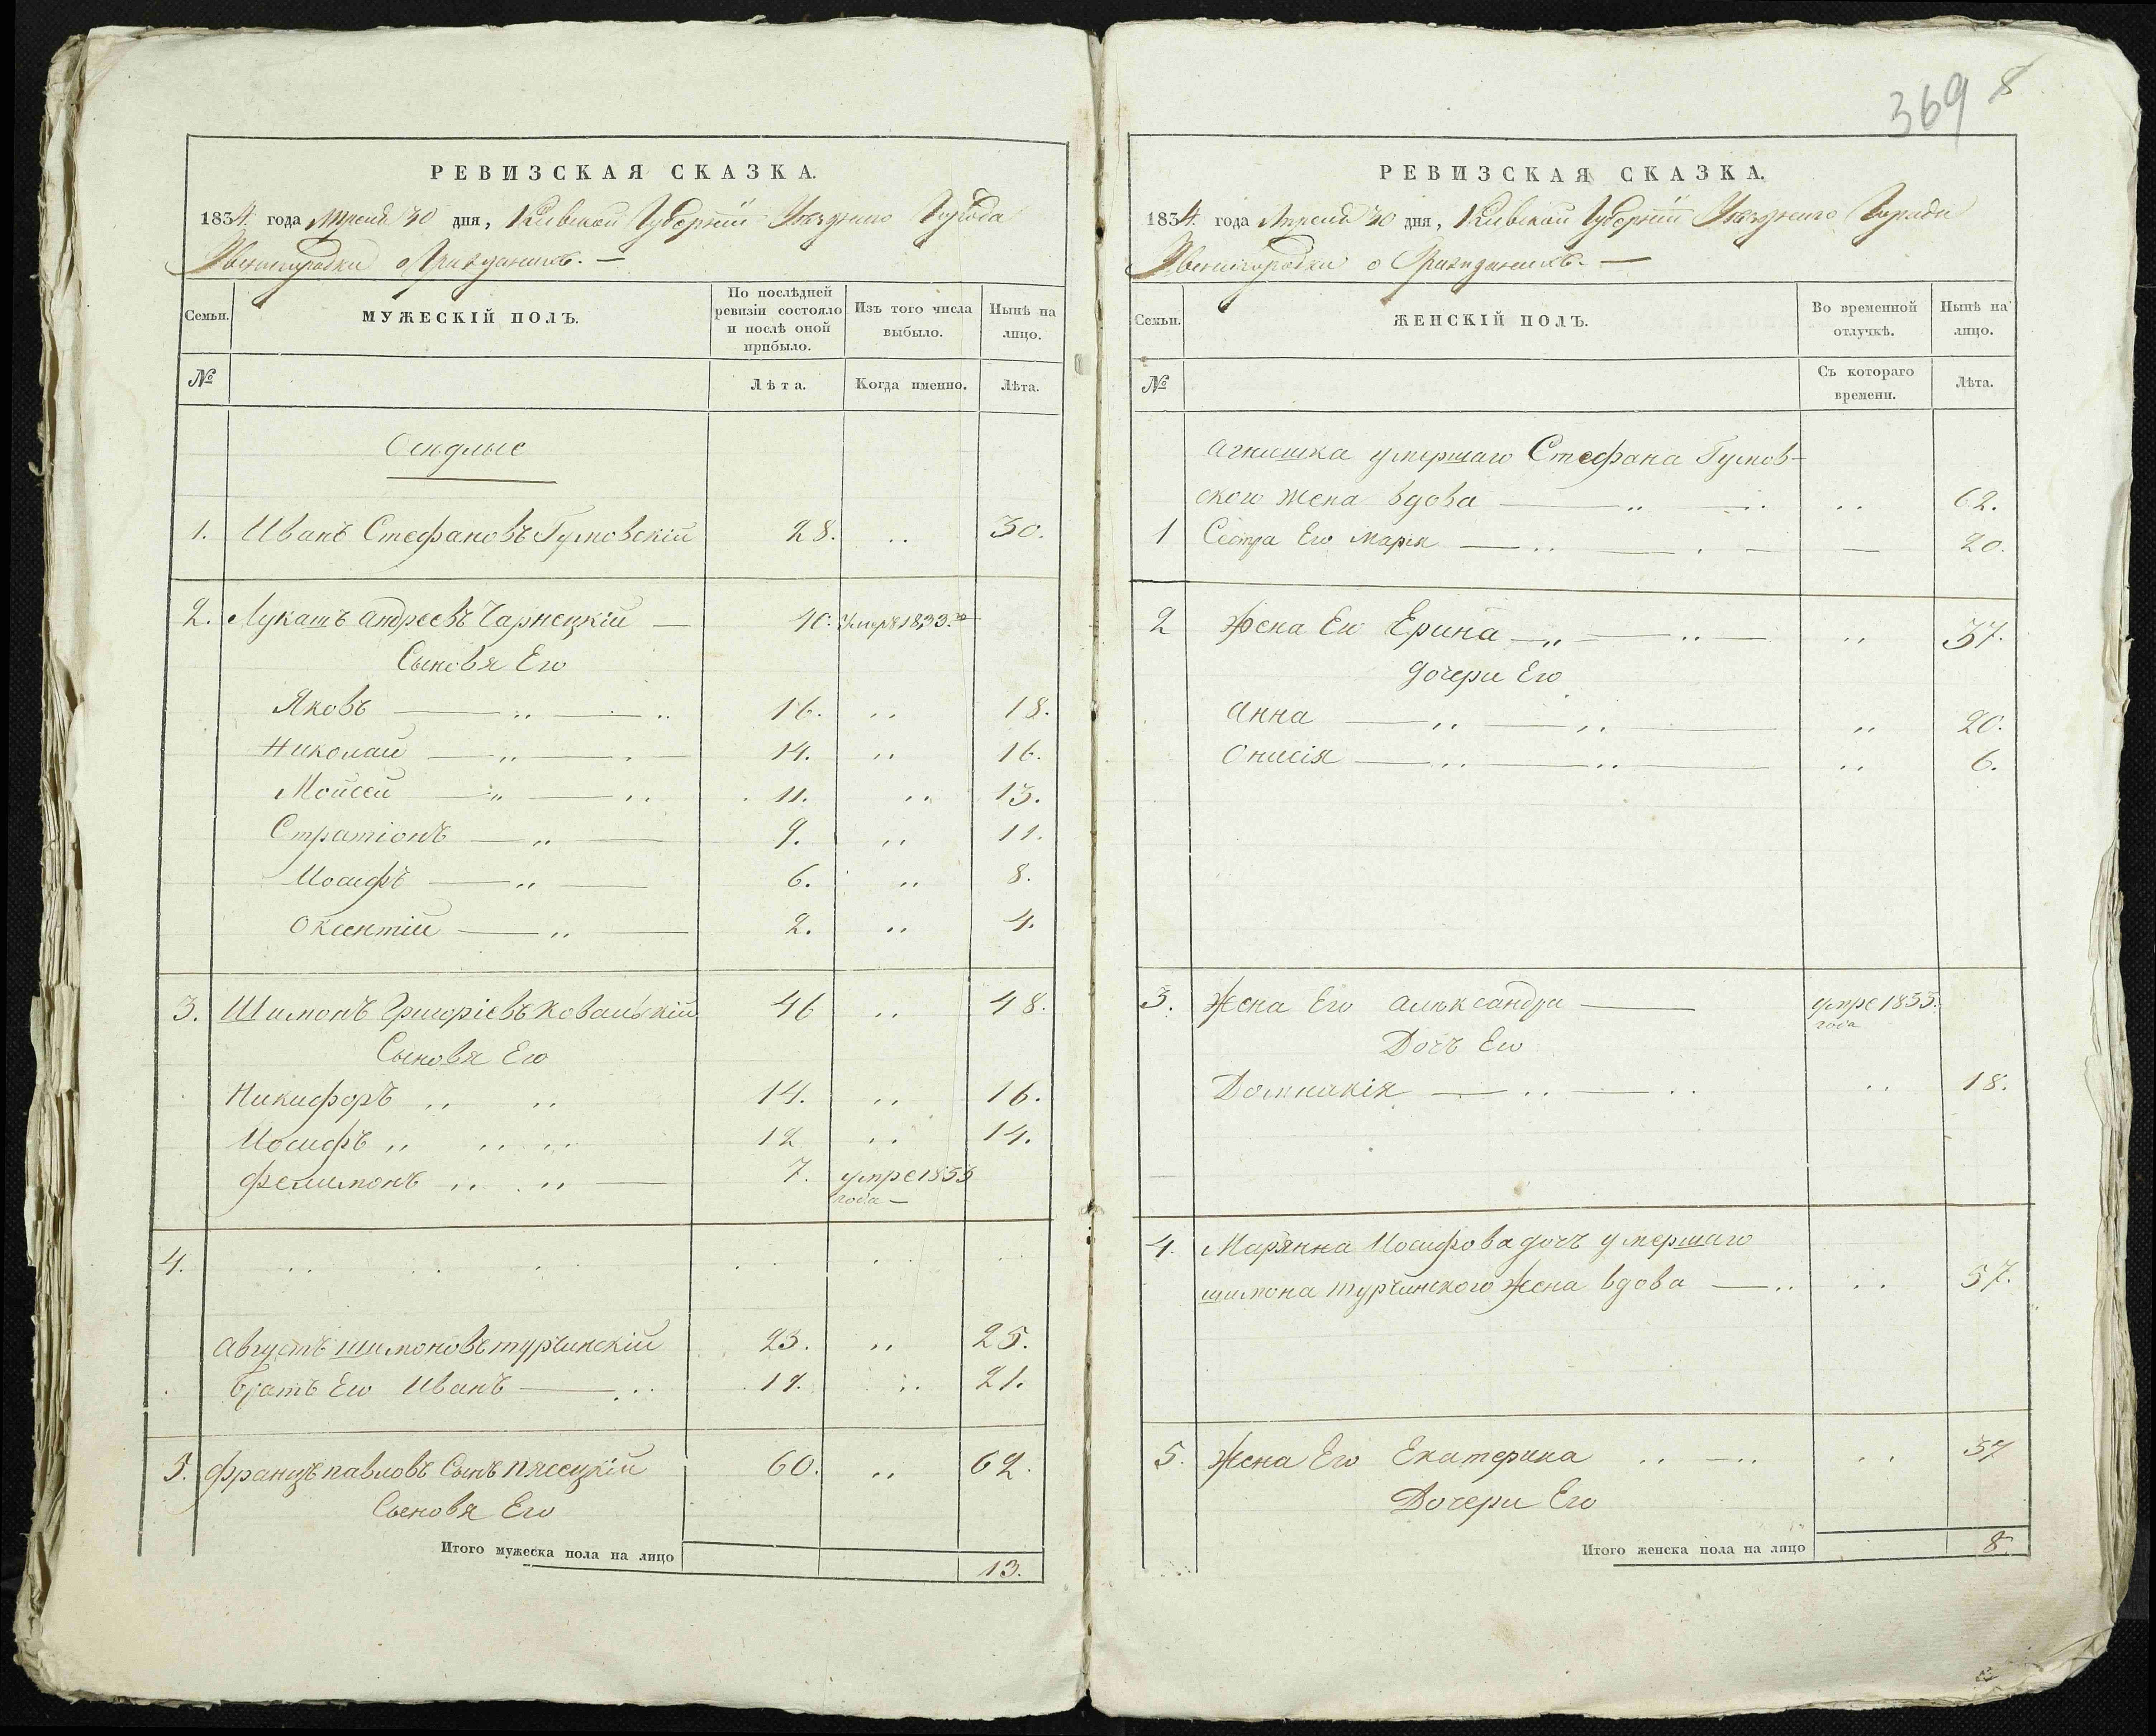 369 8
РЕВИЗСКАЯ СКАЗКА.
1834. года Апреля 30 дня, Кіевской Губерніи Уѣзднаго Города
Звенигородки о Гражданахъ. —
Семьи.
МУЖЕСКІЙ ПОЛЪ.
По послѣдней ревизіи состояло и послѣ оной прибыло.
Изъ того числа выбыло.
Нынѣ на лицо.
№
Лѣта.
Когда именно.
Лѣта.
Осѣдлые
1. Иванъ Стефановъ Гумовскій 28. „ 30.
2. Лукашъ Андреевъ Чарнецкій — 40. Умеръ 1833.
Сыновя Его
Яковъ — „ — „ 16. „ 18.
Николай — „ — „ — 14. „ 16.
Мойсей — „ — „ 11. „ 13.
Стратіонъ — „ — 9. „ 11.
Иосифъ — „ — 6. „ 8.
Оксентій — „ — 2. „ 4.
3. Шимонъ Григоріевъ Ковальскій 46 „ 48.
Сыновя Его
Никифоръ „ „ 14. „ 16.
Иосифъ „ „ „ 12 „ 14.
Фелимонъ „ „ — 7. умре 1833
года —
4. „ „ „ „ „ „
Августъ Шимоновъ Турчинскій 23. „ 25.
Братъ Его Иванъ — „ 19. „ 21.
5. Францъ Павловъ Сынъ Пясецкій 60. „ 62.
Сыновя Его
Итого мужеска пола на лицо 13.
РЕВИЗСКАЯ СКАЗКА.
1834. года Апреля 30 дня, Кіевской Губерніи Уѣзднаго Города
Звенигородки о Гражданахъ. —
Семьи.
ЖЕНСКІЙ ПОЛЪ.
Во временной отлучкѣ.
Нынѣ на лицо.
№
Съ котораго времени.
Лѣта.
Агнишка умершаго Стефана Гумов-
ского жена вдова — „ — „ „ 62.
1 Сестра Его Марія — „ — . — — 20.
2 Жена Его Ерина — „ — „ — „ 37.
Дочери Его
Анна — „ — „ — „ 20.
Онисія — „ — „ — „ 6.
3. Жена Его Алѣксандра — умре 1833.
года
Дочъ Его
Домникія — „ — „ „ 18.
4. Марянна Иосифова дочъ умершаго
Шимона Турчинского жена вдова — „ „ 57.
5. Жена Его Екатерина „ — „ „ 37
Дочери Его
Итого женска пола на лицо 8.